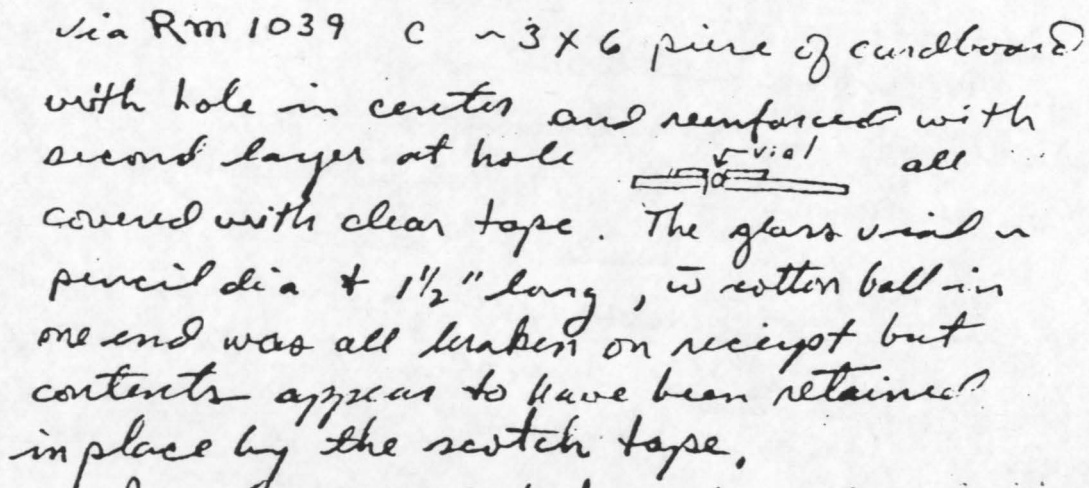 via Rm 1039 c ~3 x 6 piece of cardboard
with hole in center and reinforced with
second layer at hole vial all
covered with clear tape. The glass vial ~
pencil dia & 1½" long, w̄ cotton ball in
one end was all broken on receipt but
contents appear to have been retained
in place by the scotch tape.